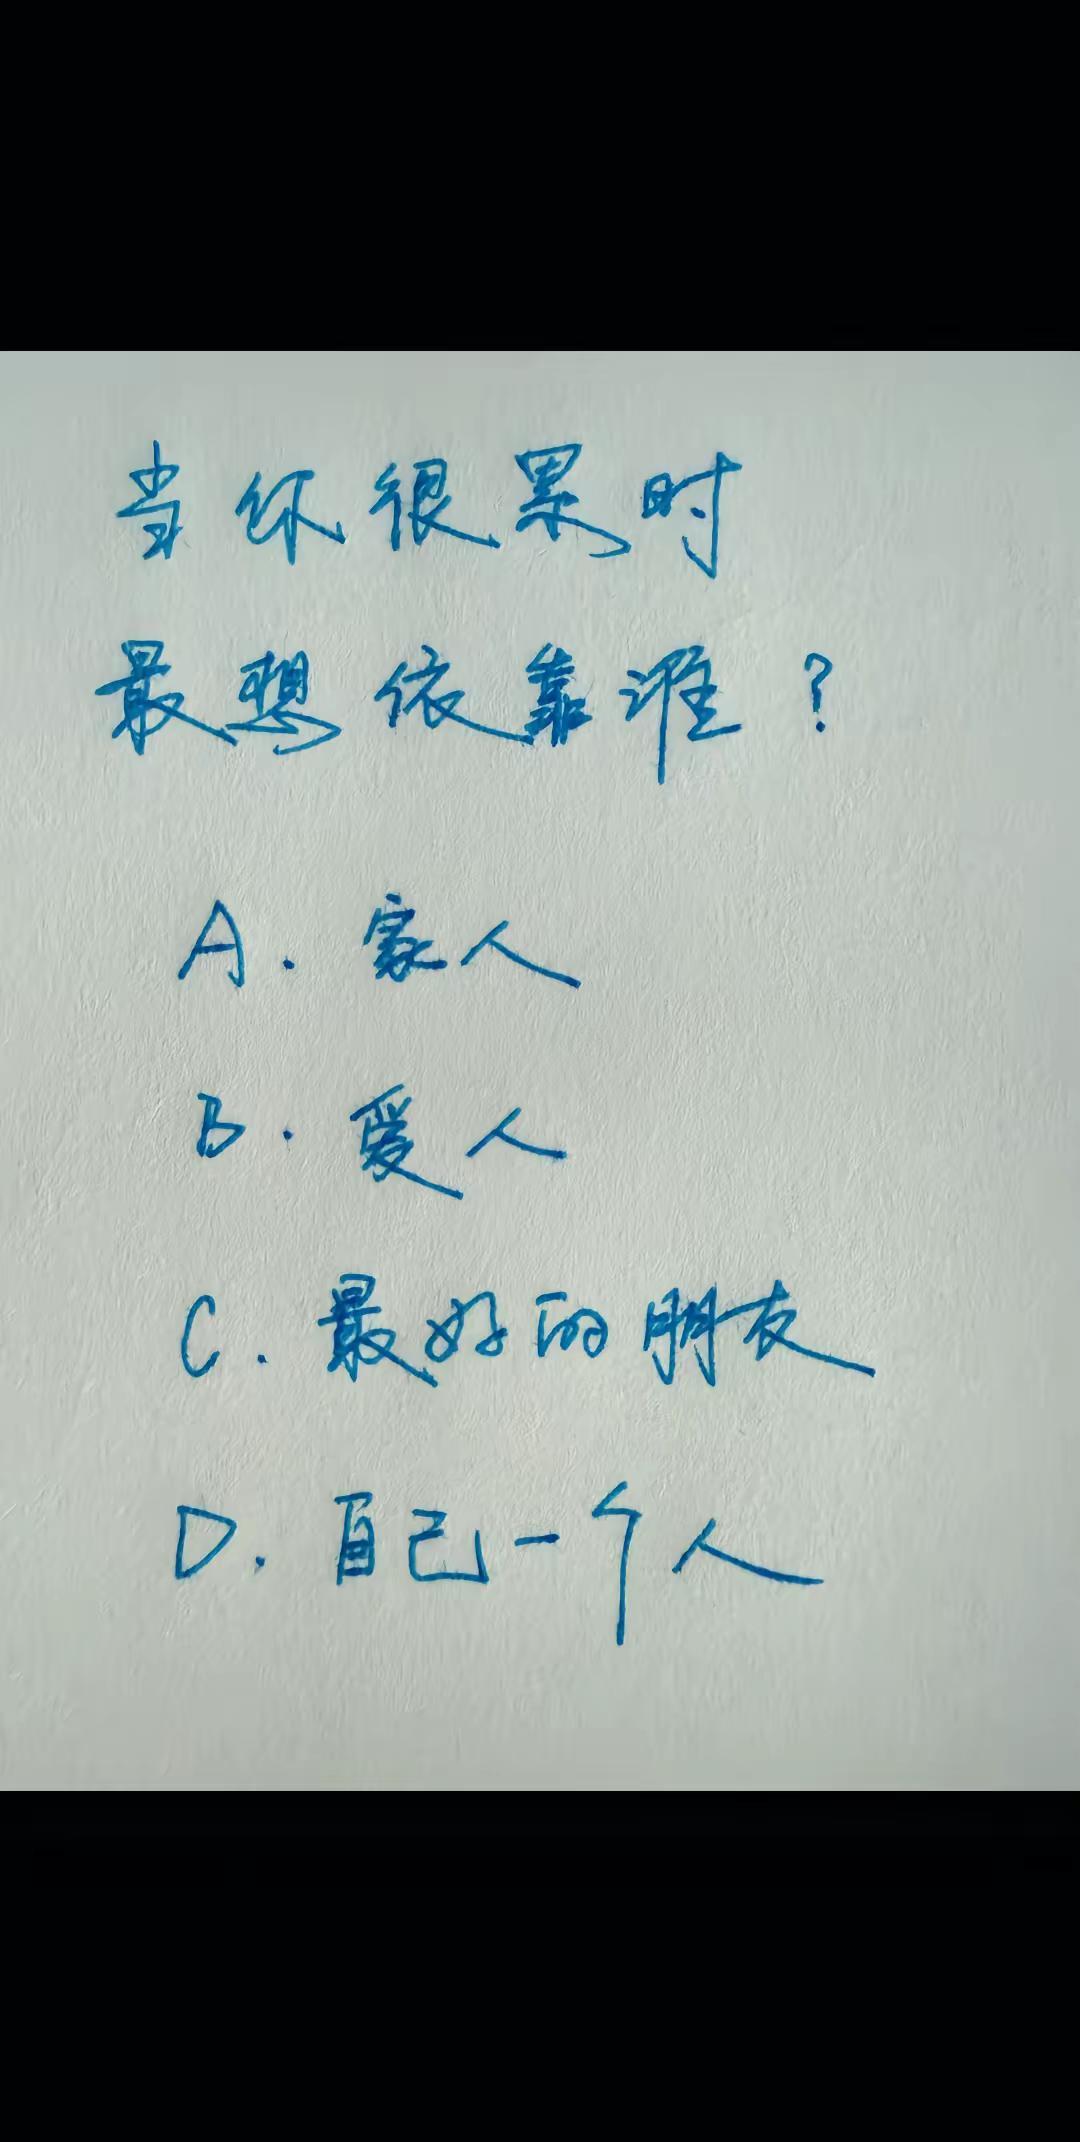 当你很累时
最想依靠谁？
A. 家人
B. 爱人
C. 最好的朋友
D. 自己一个人